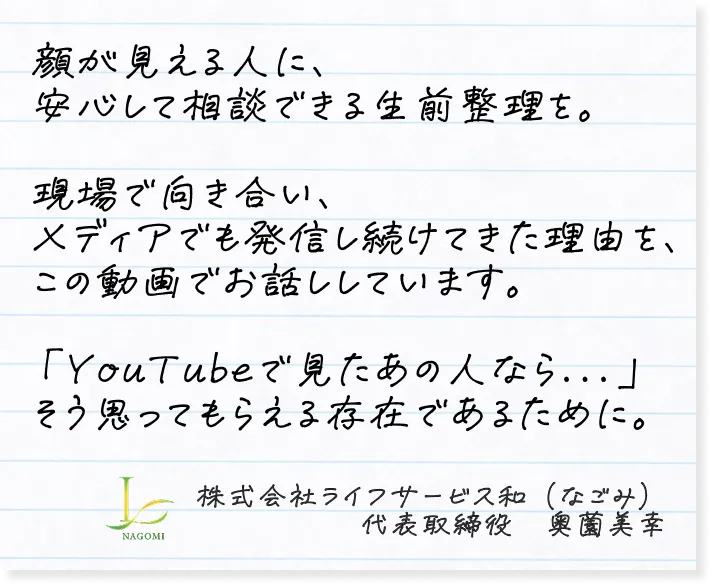 顔が見える人に、
安心して相談できる生前整理を。
現場で向き合い、
メディアでも発信し続けてきた理由を、
この動画でお話ししています。
「YouTubeで見たあの人なら...」
そう思ってもらえる存在であるために。
NAGOMI
株式会社ライフサービス和（なごみ）
代表取締役　奥薗美幸